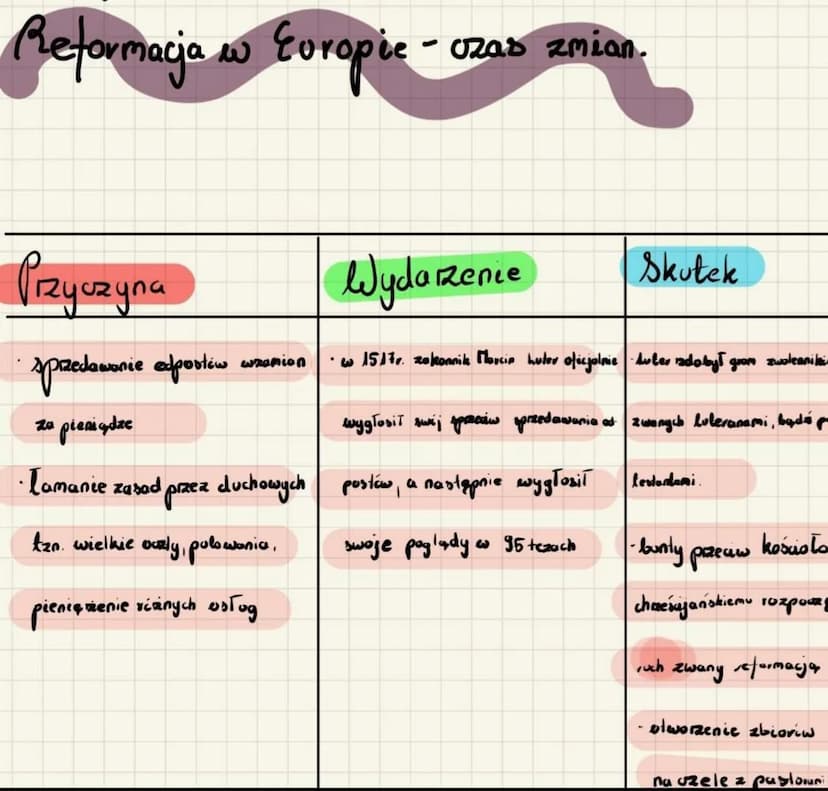 Reformacja w Europie - czas zmian.
Przyczyna
· sprzedawanie odpustów wzamian
za pieniądze
· Łamanie zasad przez duchowych
tzn. wielkie uczty, polowania,
pieniężenie różnych usług
Wydarzenie
· w 1517r. zakonnik Marcin Luter oficjalnie
wygłosił swój sprzeciw sprzedawania od
pustów, a następnie wygłosił
swoje poglądy w 95 tezach
Skutek
· Luter zdobył grom zwolennikó
zwanych luteranami, bądź p
testantami.
· bunty przeciw kościoło
chrześcijańskiemu rozpoczę
ruch zwany reformacją
· utworzenie zbiorów
na czele z pastorami